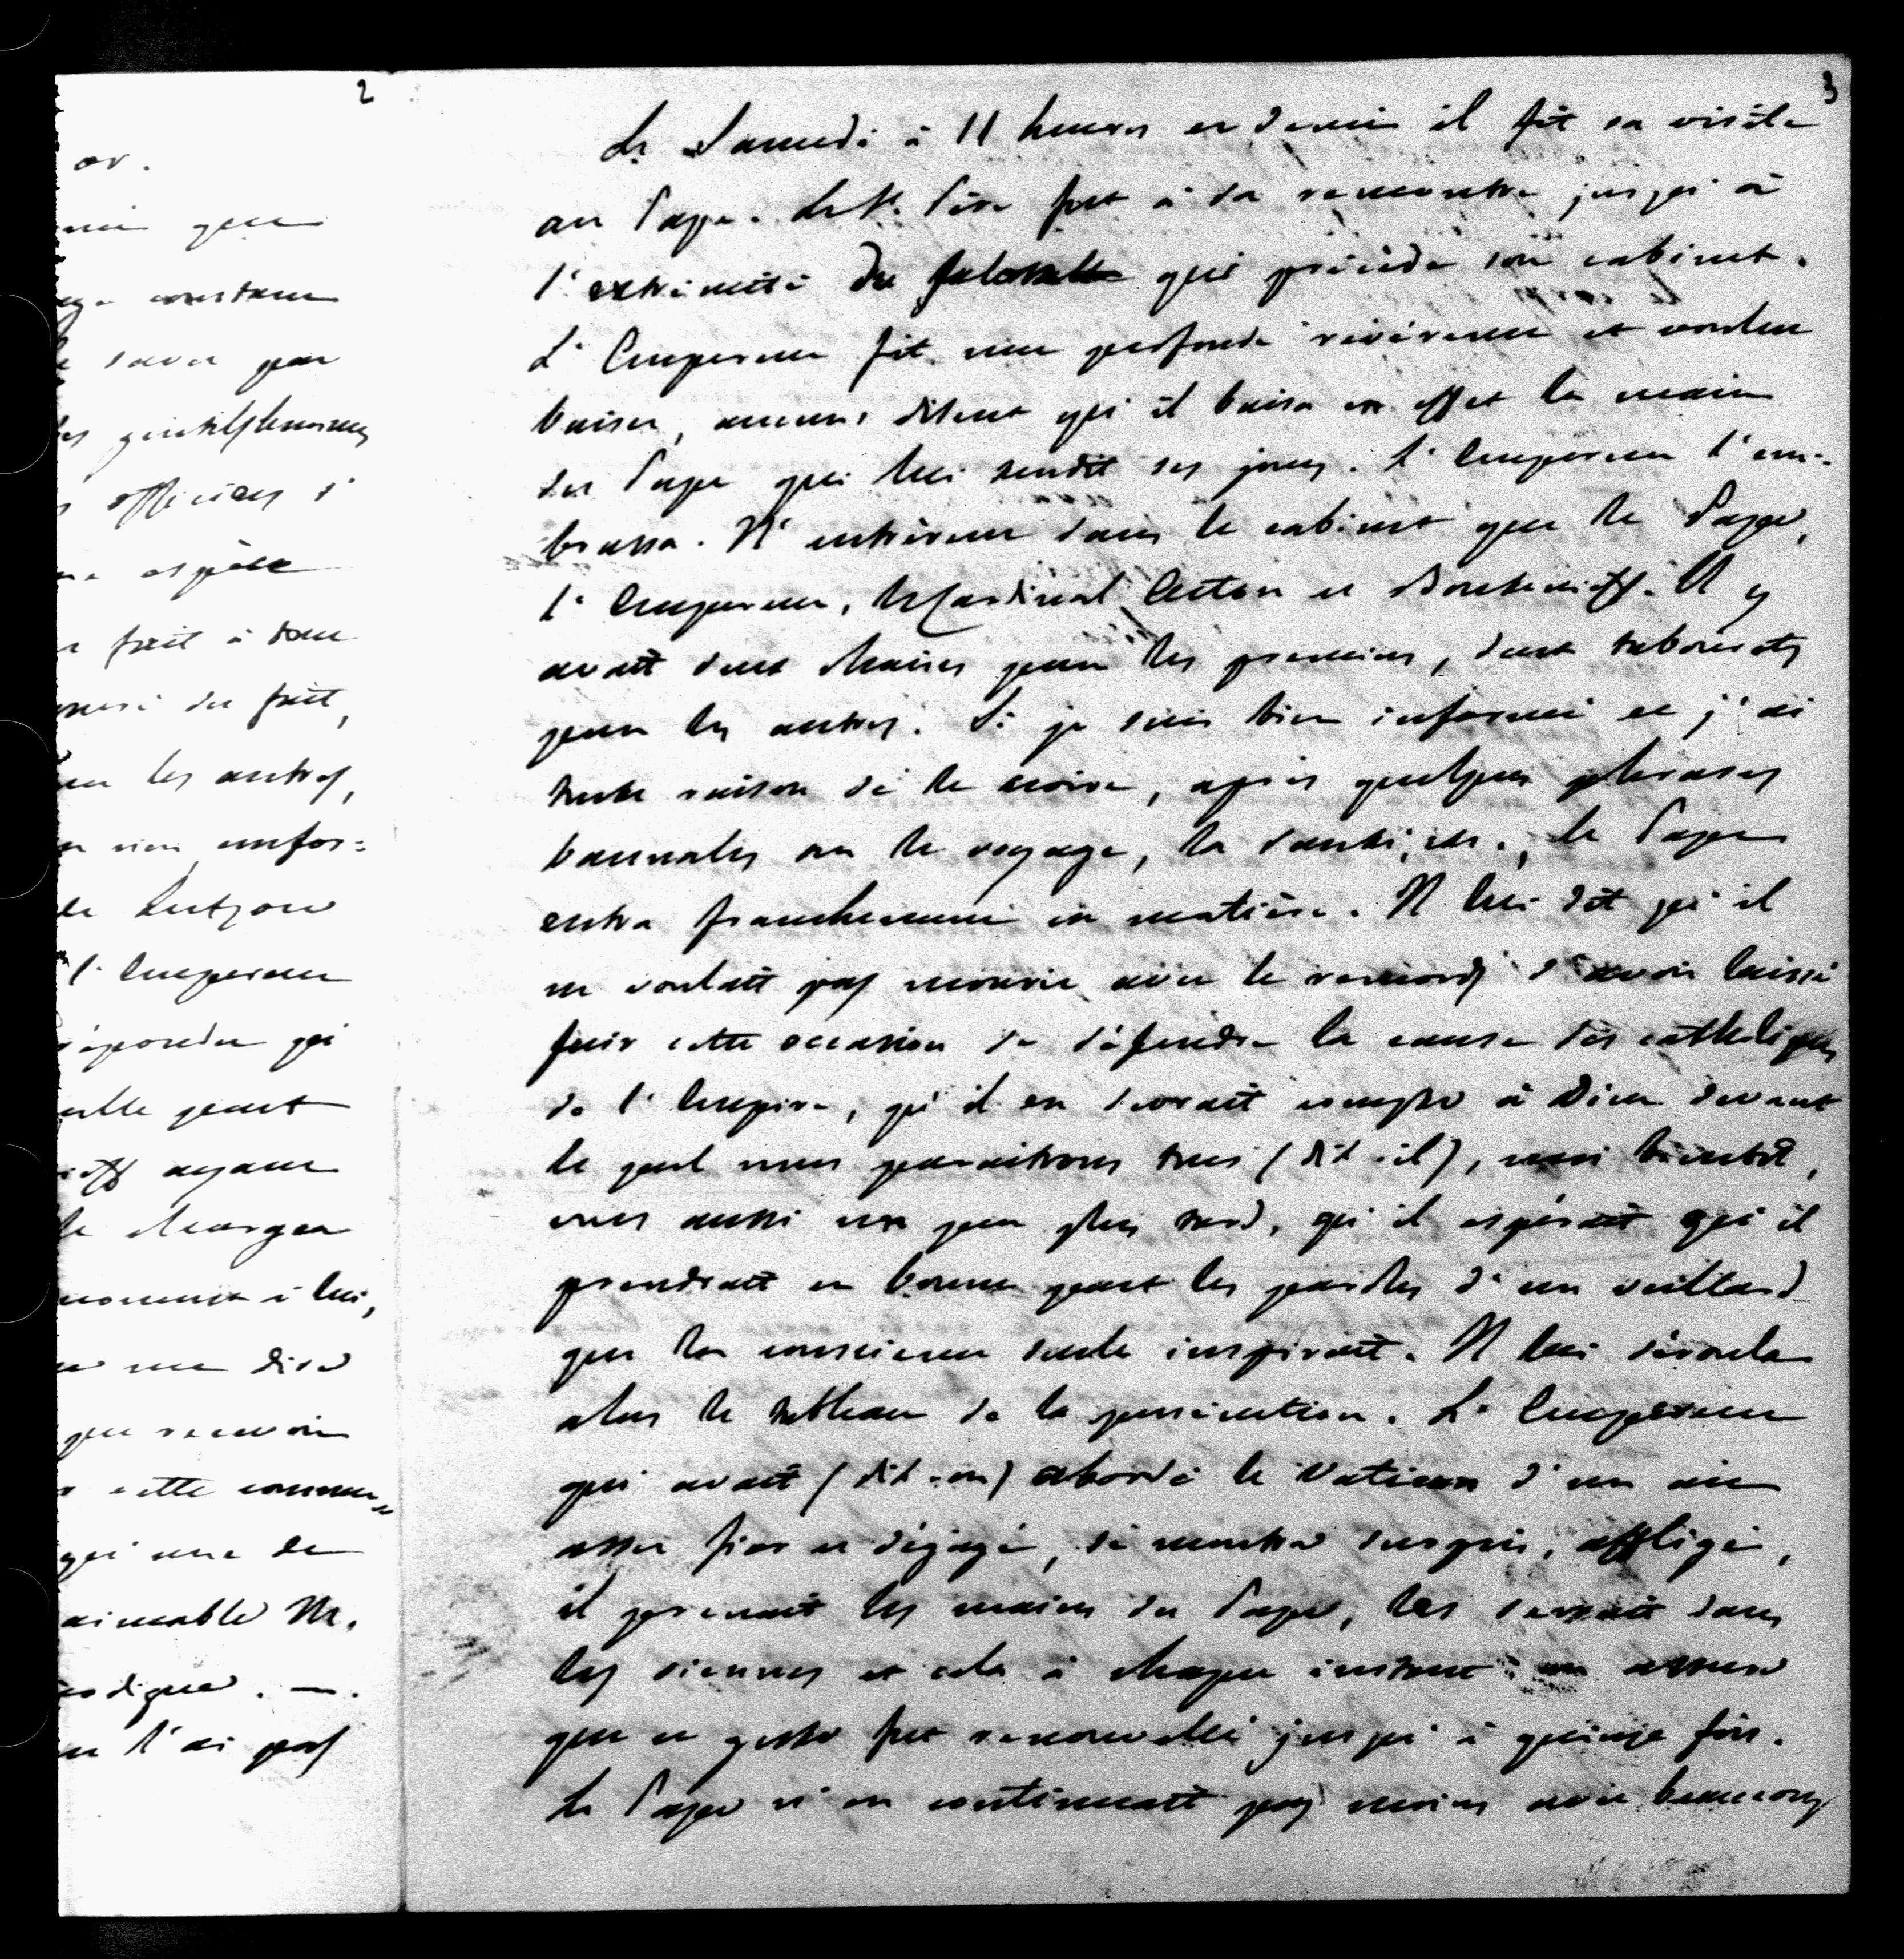 2
or.
que
constam
savoir par
les gentilshommes
officiers d'
espèce
fait à tous
du fait,
les autres,
rien confor-
de Lutzow
l'Empereur
répondu qu'
elle peut
ayant
le charger
à lui,
me dise
que recevoir
cette comm-
qu'une de
aimable M.
l'ai pas
3
Le Samedi à 11 heures et demie il fit sa visite
au Pape. Le St. Père fut à sa rencontre jusqu'à
l'extrémité de qui précède son cabinet.
L'Empereur fit une profonde révérence et voulut
baiser, aucuns disent qu'il baisa en effet la main
du Pape qui lui rendit ses joues. L'Empereur l'em-
brassa. N'entrèrent dans le cabinet que le Pape,
l'Empereur, le Cardinal Acton et Boutenieff. Il y
avait deux chaises pour les premiers, deux tabourets
pour les autres. Si je suis bien informé et j'ai
toute raison de le croire, après quelques phrases
bannales sur le voyage, la santé, etc., le Pape
entra franchement en matière. Il lui dit qu'il
ne voulait pas mourir avec le remords d'avoir laissé
fuir cette occasion de défendre la cause des catholiques
de l'Empire, qu'il en devrait compte à Dieu devant
le quel nous paraitrons tous (dit-il), moi bientôt,
vous aussi un peu plus tard, qu'il espérait qu'il
prendrait en bonne part les paroles d'un veillard
que la conscience seule inspirait. Il lui déroula
alors le tableau de la persécution. L'Empereur
qui avait (dit-on) abordé le Vatican d'un air
assez fier et dégagé, se montra surpris, affligé,
il prenait les mains du Pape, les serrait dans
les siennes et cela à chaque instant: on assure
que ce geste fut renouvellé jusqu'à quinze fois.
Le Pape n'en continuait pas moins avec beaucoup